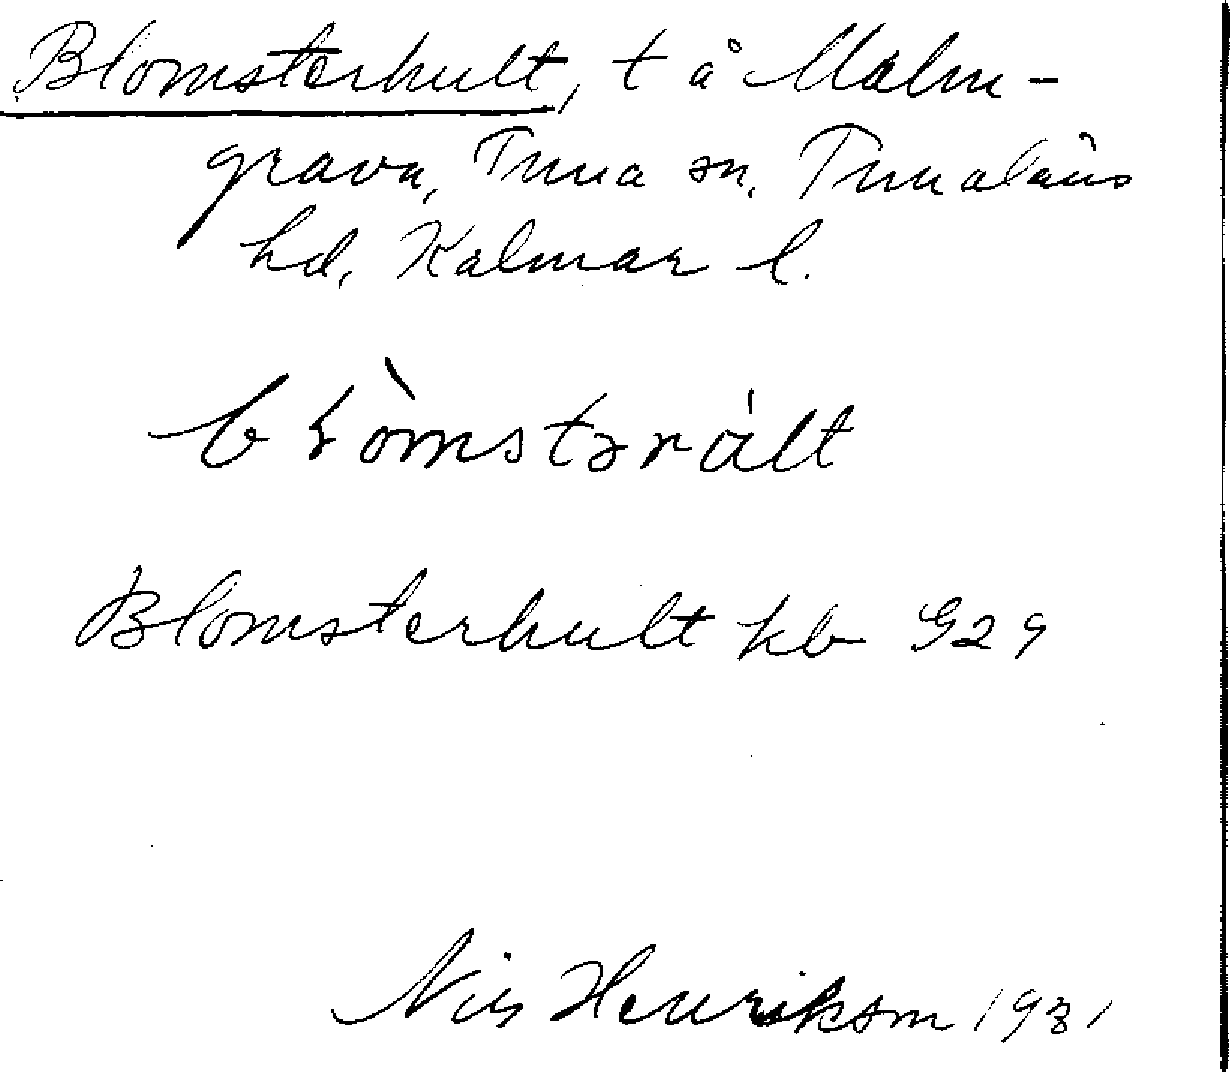 Blomsterhult, t å Malm-
grava, Tuna sn, Tunaläns
hd, Kalmar l.
blòmstərált
Blomsterhult kb G29
Nils Henrikson 1931